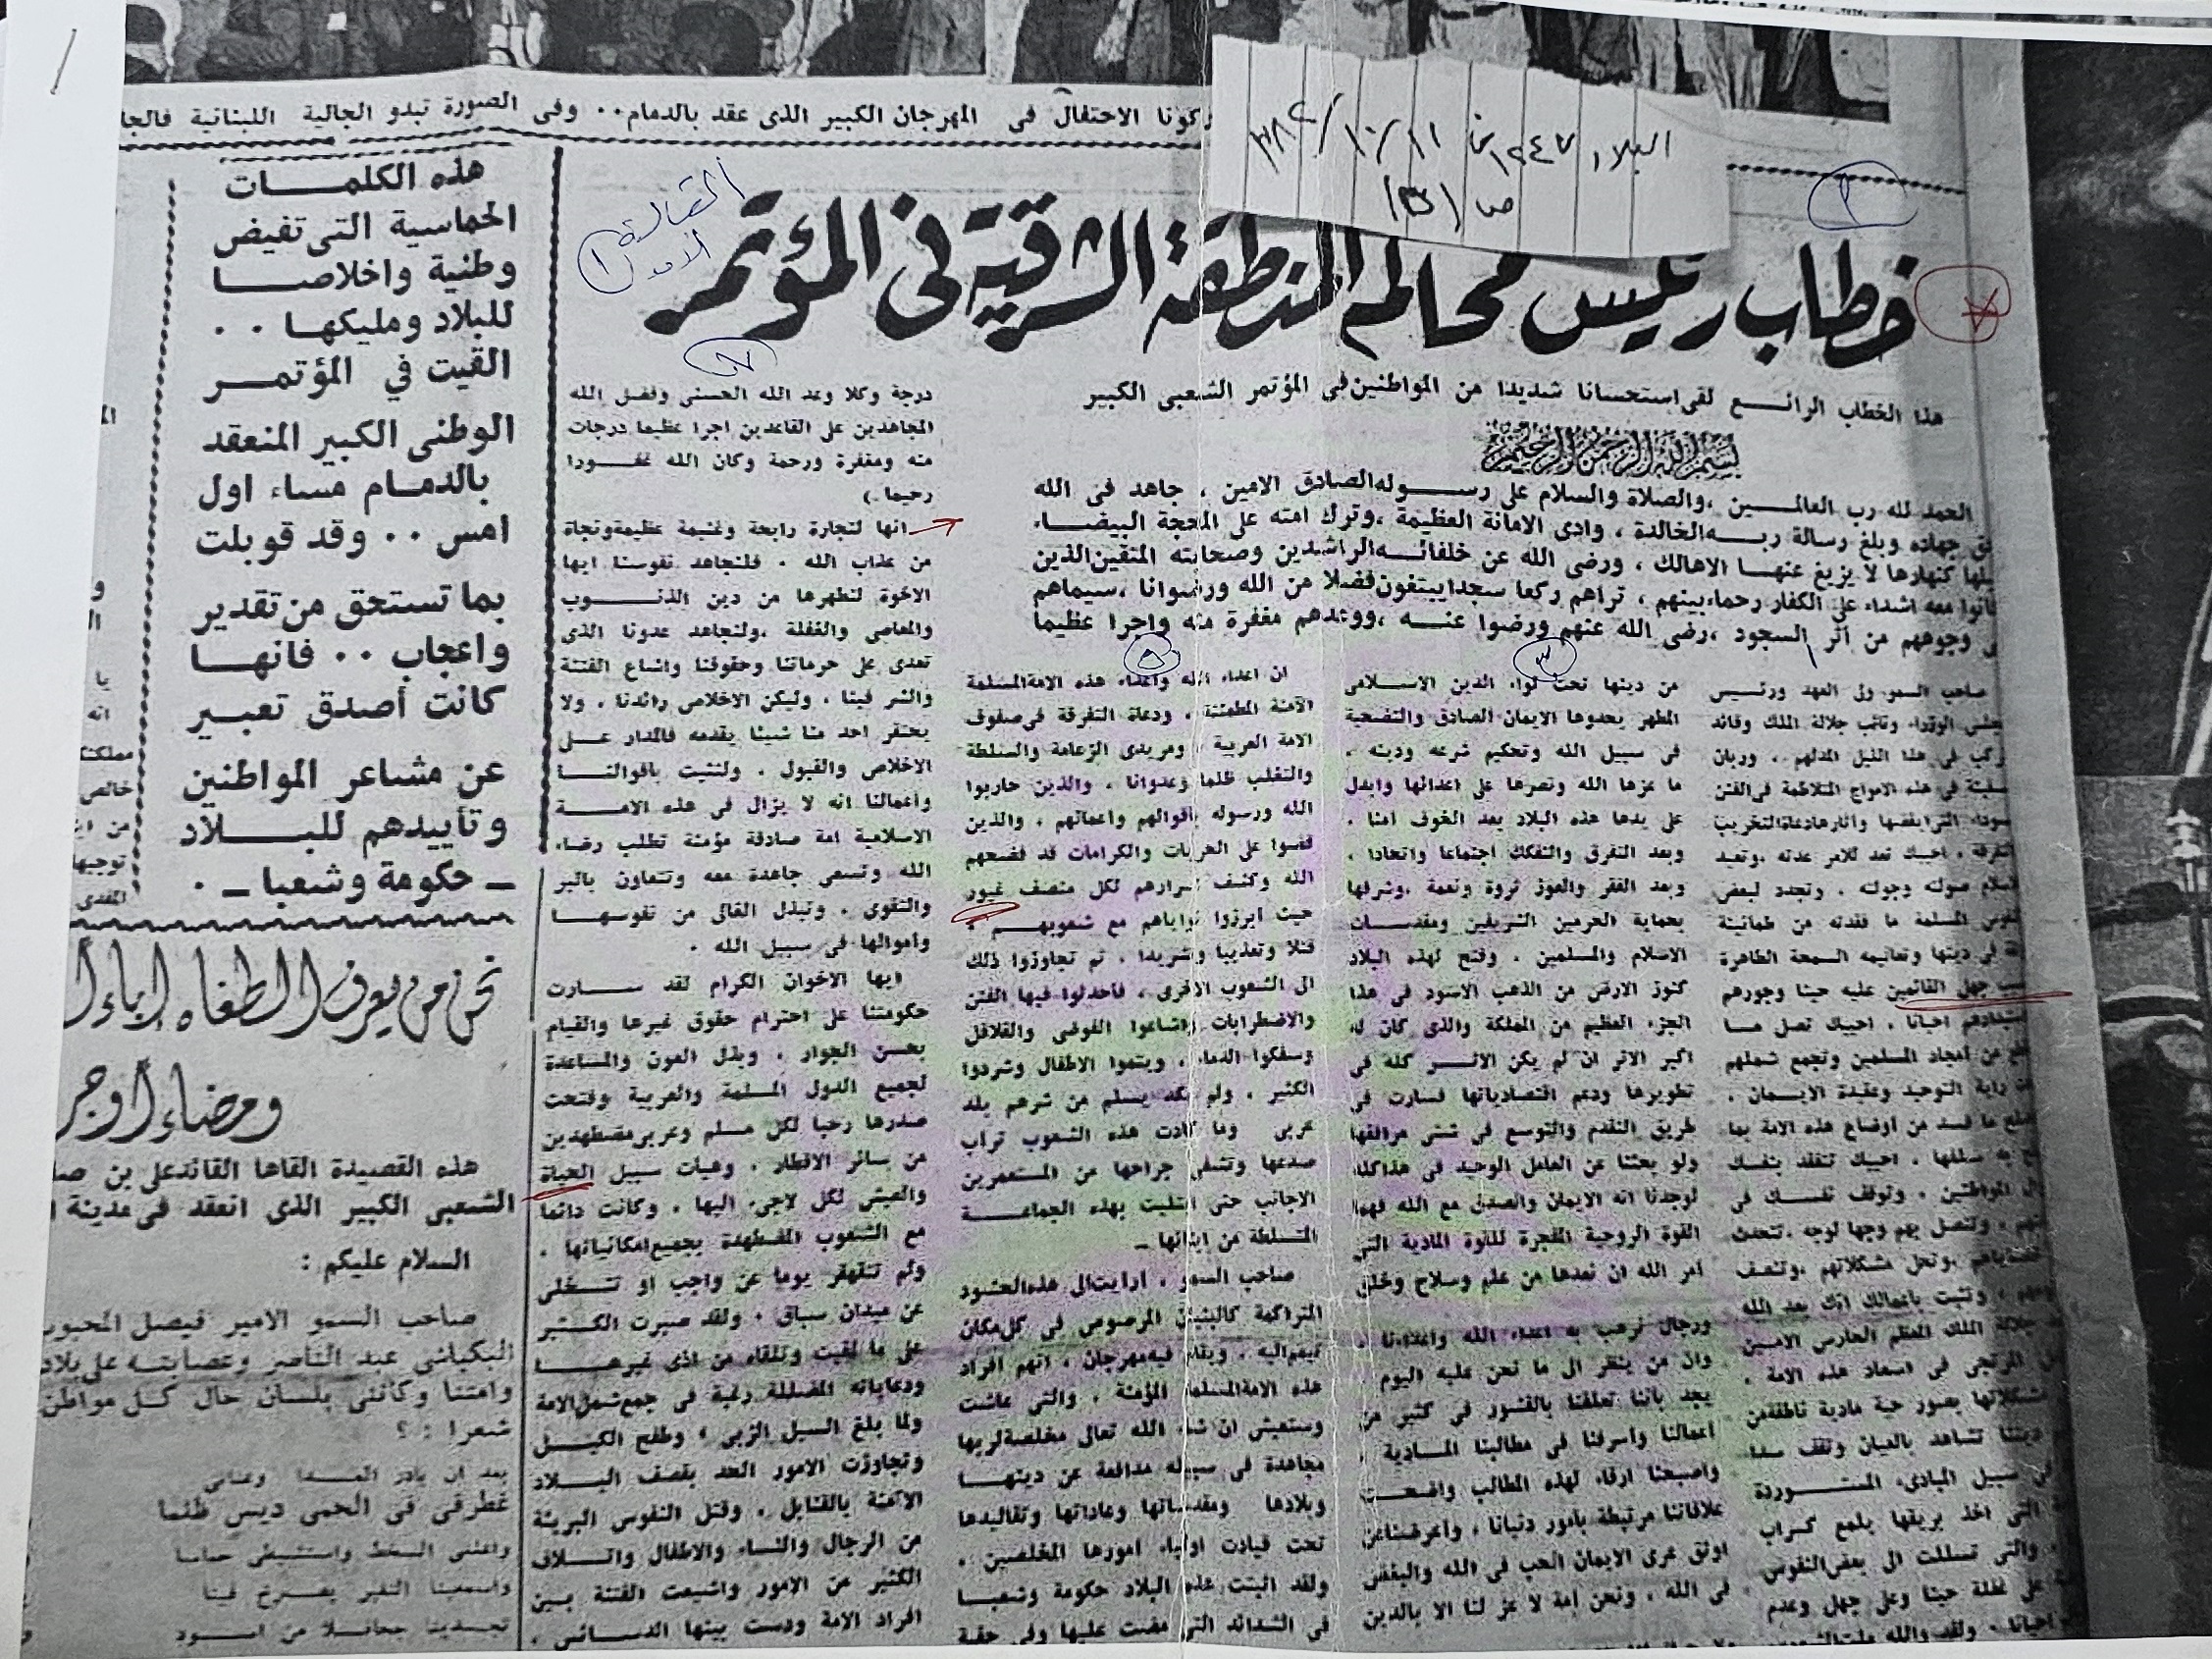 كونا الاحتفال في المهرجان الكبير الذى عقد بالدمام .. وفى الصورة تبدو الجالية اللبنانية
البلاد ١٢٤٧
ص (٣)
المقالة
خطاب رئيس محاكم المنطقة الشرقية فى المؤتمر
هذا الخطاب الرائع لقى استحسانا شديدا من المواطنين فى المؤتمر الشعبى الكبير
بسم الله الرحمن الرحيم
الحمد لله رب العالمين ، والصلاة والسلام على رسوله الصادق الامين ، جاهد فى الله
جهاده وبلغ رسالة ربه الخالدة ، وادى الامانة العظيمة ، وترك امته على المحجة البيضاء
كنهارها لا يزيغ عنها الا هالك ، ورضى الله عن خلفائه الراشدين وصحابته المتقين الذين
معه اشداء على الكفار رحماء بينهم ، تراهم ركعا سجدا يبتغون فضلا من الله ورضوانا ، سيماهم
وجوههم من أثر السجود ، رضى الله عنهم ورضوا عنه ، ووعدهم مغفرة منه واجرا عظيما
صاحب السمو ولى العهد ورئيس
الوزراء ونائب جلالة الملك وقائد
فى هذا الليل المدلهم ، وربان
فى هذه الامواج المتلاطمة فى الفتن
احييك تعد للامر عدته ، وتعيد
صولته وجولته ، وتجدد لبعض
المسلمة ما فقدته من طمانينة
فى دينها وتعاليمه السمحة الطاهرة
جهل القائمين عليه حينا وجورهم
احيانا ، احييك تصل ما
من امجاد المسلمين وتجمع شملهم
راية التوحيد وعقيدة الايمان ،
ما فسد من اوضاع هذه الامة بما
به سلفها ، احييك تتفقد بنفسك
المواطنين ، وتوقف نفسك فى
وتتصل بهم وجها لوجه ، تتحدث
وتحل مشكلاتهم ، وتنصف
وتثبت باعمالك انك بعد الله
جلالة الملك المعظم الحارس الامين
المرتجى فى اسعاد هذه الامة ،
بصور حية مادية ناطقة من
ديننا تشاهد بالعيان وتقف سدا
فى سبيل المبادىء المستوردة
التى اخذ بريقها يلمع كسراب
والتى تسللت الى بعض النفوس
على غفلة حينا وعلى جهل وعدم
من دينها تحت لواء الدين الاسلامى
المطهر يحدوها الايمان الصادق والتضحية
فى سبيل الله وتحكيم شرعه ودينه ،
ما عزها الله ونصرها على اعدائها وابدل
على يدها هذه البلاد بعد الخوف امنا ،
وبعد التفرق والتفكك اجتماعا واتحادا ،
وبعد الفقر والعوز ثروة ونعمة ، وشرفها
بحماية الحرمين الشريفين ومقدسات
الاسلام والمسلمين ، وفتح لهذه البلاد
كنوز الارض من الذهب الاسود فى هذا
الجزء العظيم من المملكة والذى كان له
اكبر الاثر ان لم يكن الاثر كله فى
تطويرها ودعم اقتصادياتها فسارت فى
طريق التقدم والتوسع فى شتى مرافقها
ولو بحثنا عن العامل الوحيد فى هذا كله
لوجدنا انه الايمان والصدق مع الله فهما
القوة الروحية المفجرة للقوة المادية التى
امر الله ان نعدها من علم وسلاح وخلق
ورجال نرهب به اعداء الله واعداءنا ،
وان من ينظر الى ما نحن عليه اليوم
يجد باننا تعلقنا بالقشور فى كثير من
اعمالنا واسرفنا فى مطالبنا المادية ،
واصبحنا ارقاء لهذه المطالب واضحت
علاقاتنا مرتبطة بامور دنيانا ، واعرضنا عن
اوثق عرى الايمان الحب فى الله والبغض
فى الله ، ونحن امة لا عز لنا الا بالدين
ان اعداء الله واعداء هذه الامة المسلمة
الآمنة المطمئنة ، ودعاة التفرقة فى صفوف
الامة العربية ، ومريدى الزعامة والسلطة
والتغلب ظلما وعدوانا ، والذين حاربوا
الله ورسوله باقوالهم واعمالهم ، والذين
قضوا على الحريات والكرامات قد فضحهم
الله وكشف اسرارهم لكل منصف غيور
حيث ابرزوا نواياهم مع شعوبهم ،
قتلا وتعذيبا وتشريدا ، ثم تجاوزوا ذلك
الى الشعوب الاخرى ، فاحدثوا فيها الفتن
والاضطرابات واشاعوا الفوضى والقلاقل
وسفكوا الدماء ، ويتموا الاطفال وشردوا
الكثير ، ولم يكد يسلم من شرهم بلد
عربى وما كادت هذه الشعوب تراب
صدعها وتشفى جراحها من المستعمرين
الاجانب حتى ابتليت بهذه الجماعة
المتسلطة من ابنائها ـ
صاحب السمو ، ارايت الى هذه الحشود
المتراكمة كالبنيان المرصوص فى كل مكان
ويقام فيه مهرجان ، انهم افراد
هذه الامة المسلمة المؤمنة ، والتى عاشت
وستعيش ان شاء الله تعالى مخلصة لربها
مجاهدة فى سبيله مدافعة عن دينها
وبلادها ومقدساتها وعاداتها وتقاليدها
تحت قيادت اولياء امورها المخلصين ،
ولقد اثبتت هذه البلاد حكومة وشعبا
فى الشدائد التى مضت عليها وفى حقبة
درجة وكلا وعد الله الحسنى وفضل الله
المجاهدين على القاعدين اجرا عظيما درجات
منه ومغفرة ورحمة وكان الله غفورا
رحيما .)
انها لتجارة رابحة وغنيمة عظيمة ونجاة
من عذاب الله ، فلنجاهد نفوسنا ايها
الاخوة لنطهرها من دين الذنوب
والمعاصى والغفلة ، ولنجاهد عدونا الذى
تعدى على حرماتنا وحقوقنا واشاع الفتنة
والشر فينا ، وليكن الاخلاص رائدنا ، ولا
يحتقر احد منا شيئا يقدمه فالمدار على
الاخلاص والقبول ، ولنثبت باقوالنا
واعمالنا انه لا يزال فى هذه الامة
الاسلامية امة صادقة مؤمنة تطلب رضاء
الله وتسعى جاهدة معه وتتعاون بالبر
والتقوى ، وتبذل الغالى من نفوسها
واموالها فى سبيل الله .
ايها الاخوان الكرام لقد سارت
حكومتنا على احترام حقوق غيرها والقيام
بحسن الجوار ، وبذل العون والمساعدة
لجميع الدول المسلمة والعربية وفتحت
صدرها رحبا لكل مسلم وعربى مضطهدين
من سائر الاقطار ، وهيات سبيل الحياة
والعيش لكل لاجىء اليها ، وكانت دائما
مع الشعوب المضطهدة بجميع امكانياتها ،
ولم تتقهقر يوما عن واجب او تتخلى
عن ميدان سباق ، ولقد صبرت الكثير
على ما لقيت وتلقاه من اذى غيرها
ودعاياته المضللة رغبة فى جمع شمل الامة
ولما بلغ السيل الزبى ، وطفح الكيل
وتجاوزت الامور الحد بقصف البلاد
الآمنة بالقنابل ، وقتل النفوس البريئة
من الرجال والنساء والاطفال واتلاف
الكثير من الامور واشيعت الفتنة بين
افراد الامة ودست بينها الدسائس ،
هذه الكلمات
الحماسية التى تفيض
وطنية واخلاصا
للبلاد ومليكها ..
القيت في المؤتمر
الوطنى الكبير المنعقد
بالدمام مساء اول
امس .. وقد قوبلت
بما تستحق من تقدير
واعجاب .. فانها
كانت أصدق تعبير
عن مشاعر المواطنين
وتأييدهم للبلاد
ـ حكومة وشعبا ـ .
نحن من يعرف الطغاه اباءا
ومضاء أو
هذه القصيدة القاها القائد على بن
الشعبى الكبير الذى انعقد فى مدينة
السلام عليكم :
صاحب السمو الامير فيصل المحبوب
البكباشى عبد الناصر وعصابته على بلاد
وامتنا وكأننى بلسان حال كل مواطن
شعرا : ؟
غطرفى فى الحمى ديس ظلما